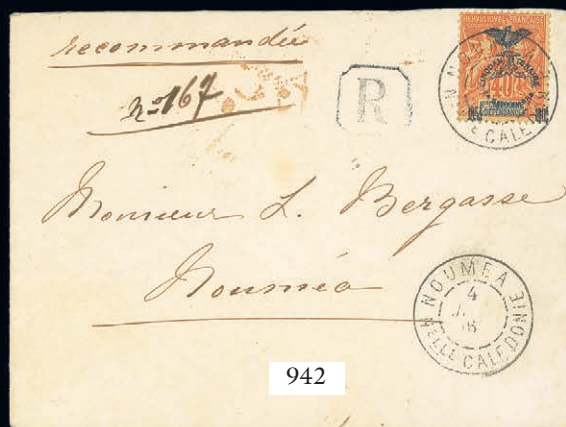 recommandée
nº 167
R
REPUBLIQUE FRANCAISE
40
CALE
Monsieur L. Bergasse
Nouméa
NOUMEA
4
NELLE CALEDONIE
942